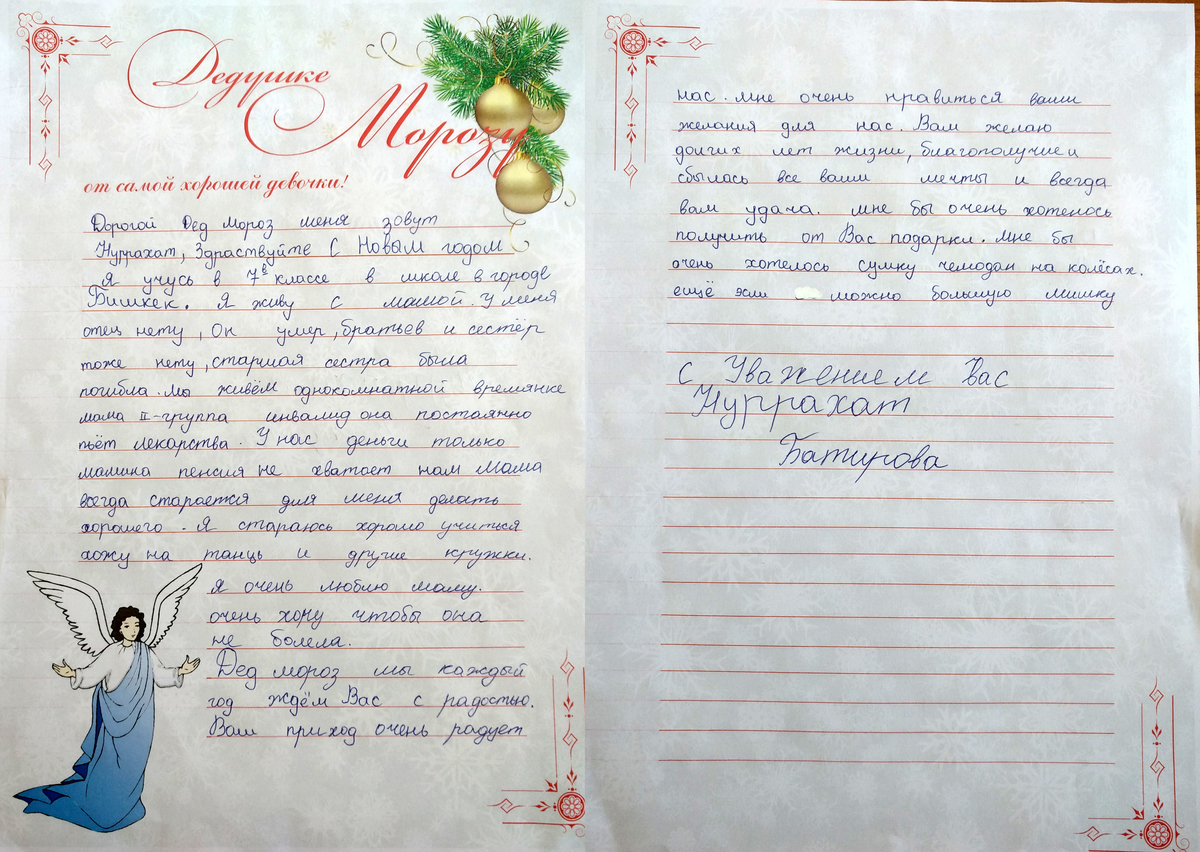 Дедушке
Морозу
от самой хорошей девочки!
Дорогой Дед мороз меня зовут
Нуррахат, Здраствуйте С Новым годом
Я учусь в 7в классе в школе в городе
Бишкек. Я живу с мамой. У меня
отец нету, Он умер, братьев и сестёр
тоже нету, старшая сестра была
погибла. мы живём однокомнатной времянке
мама II-группа инвалид она постаянно
пьёт лекарства. У нас деньги только
мамина пенсия не хватает нам Мама
всегда старается для меня делать
хорошего. Я стараюсь хорошо учиться
хожу на танць и другие кружки.
Я очень люблю маму.
очень хочу чтобы она
не болела.
Дед мороз мы каждый
год ждём Вас с радостью.
Ваш приход очень радует
нас. мне очень нравиться ваши
желания для нас. Вам желаю
долгих лет жизни, благополучие и
сбылась все ваши мечты и всегда
вам удача. мне бы очень хотелось
получить от Вас подарки. Мне бы
очень хотелось сумку чемодан на колёсах.
ещё если можно большую мишку
С Уважением Вас
Нуррахат
Батирова